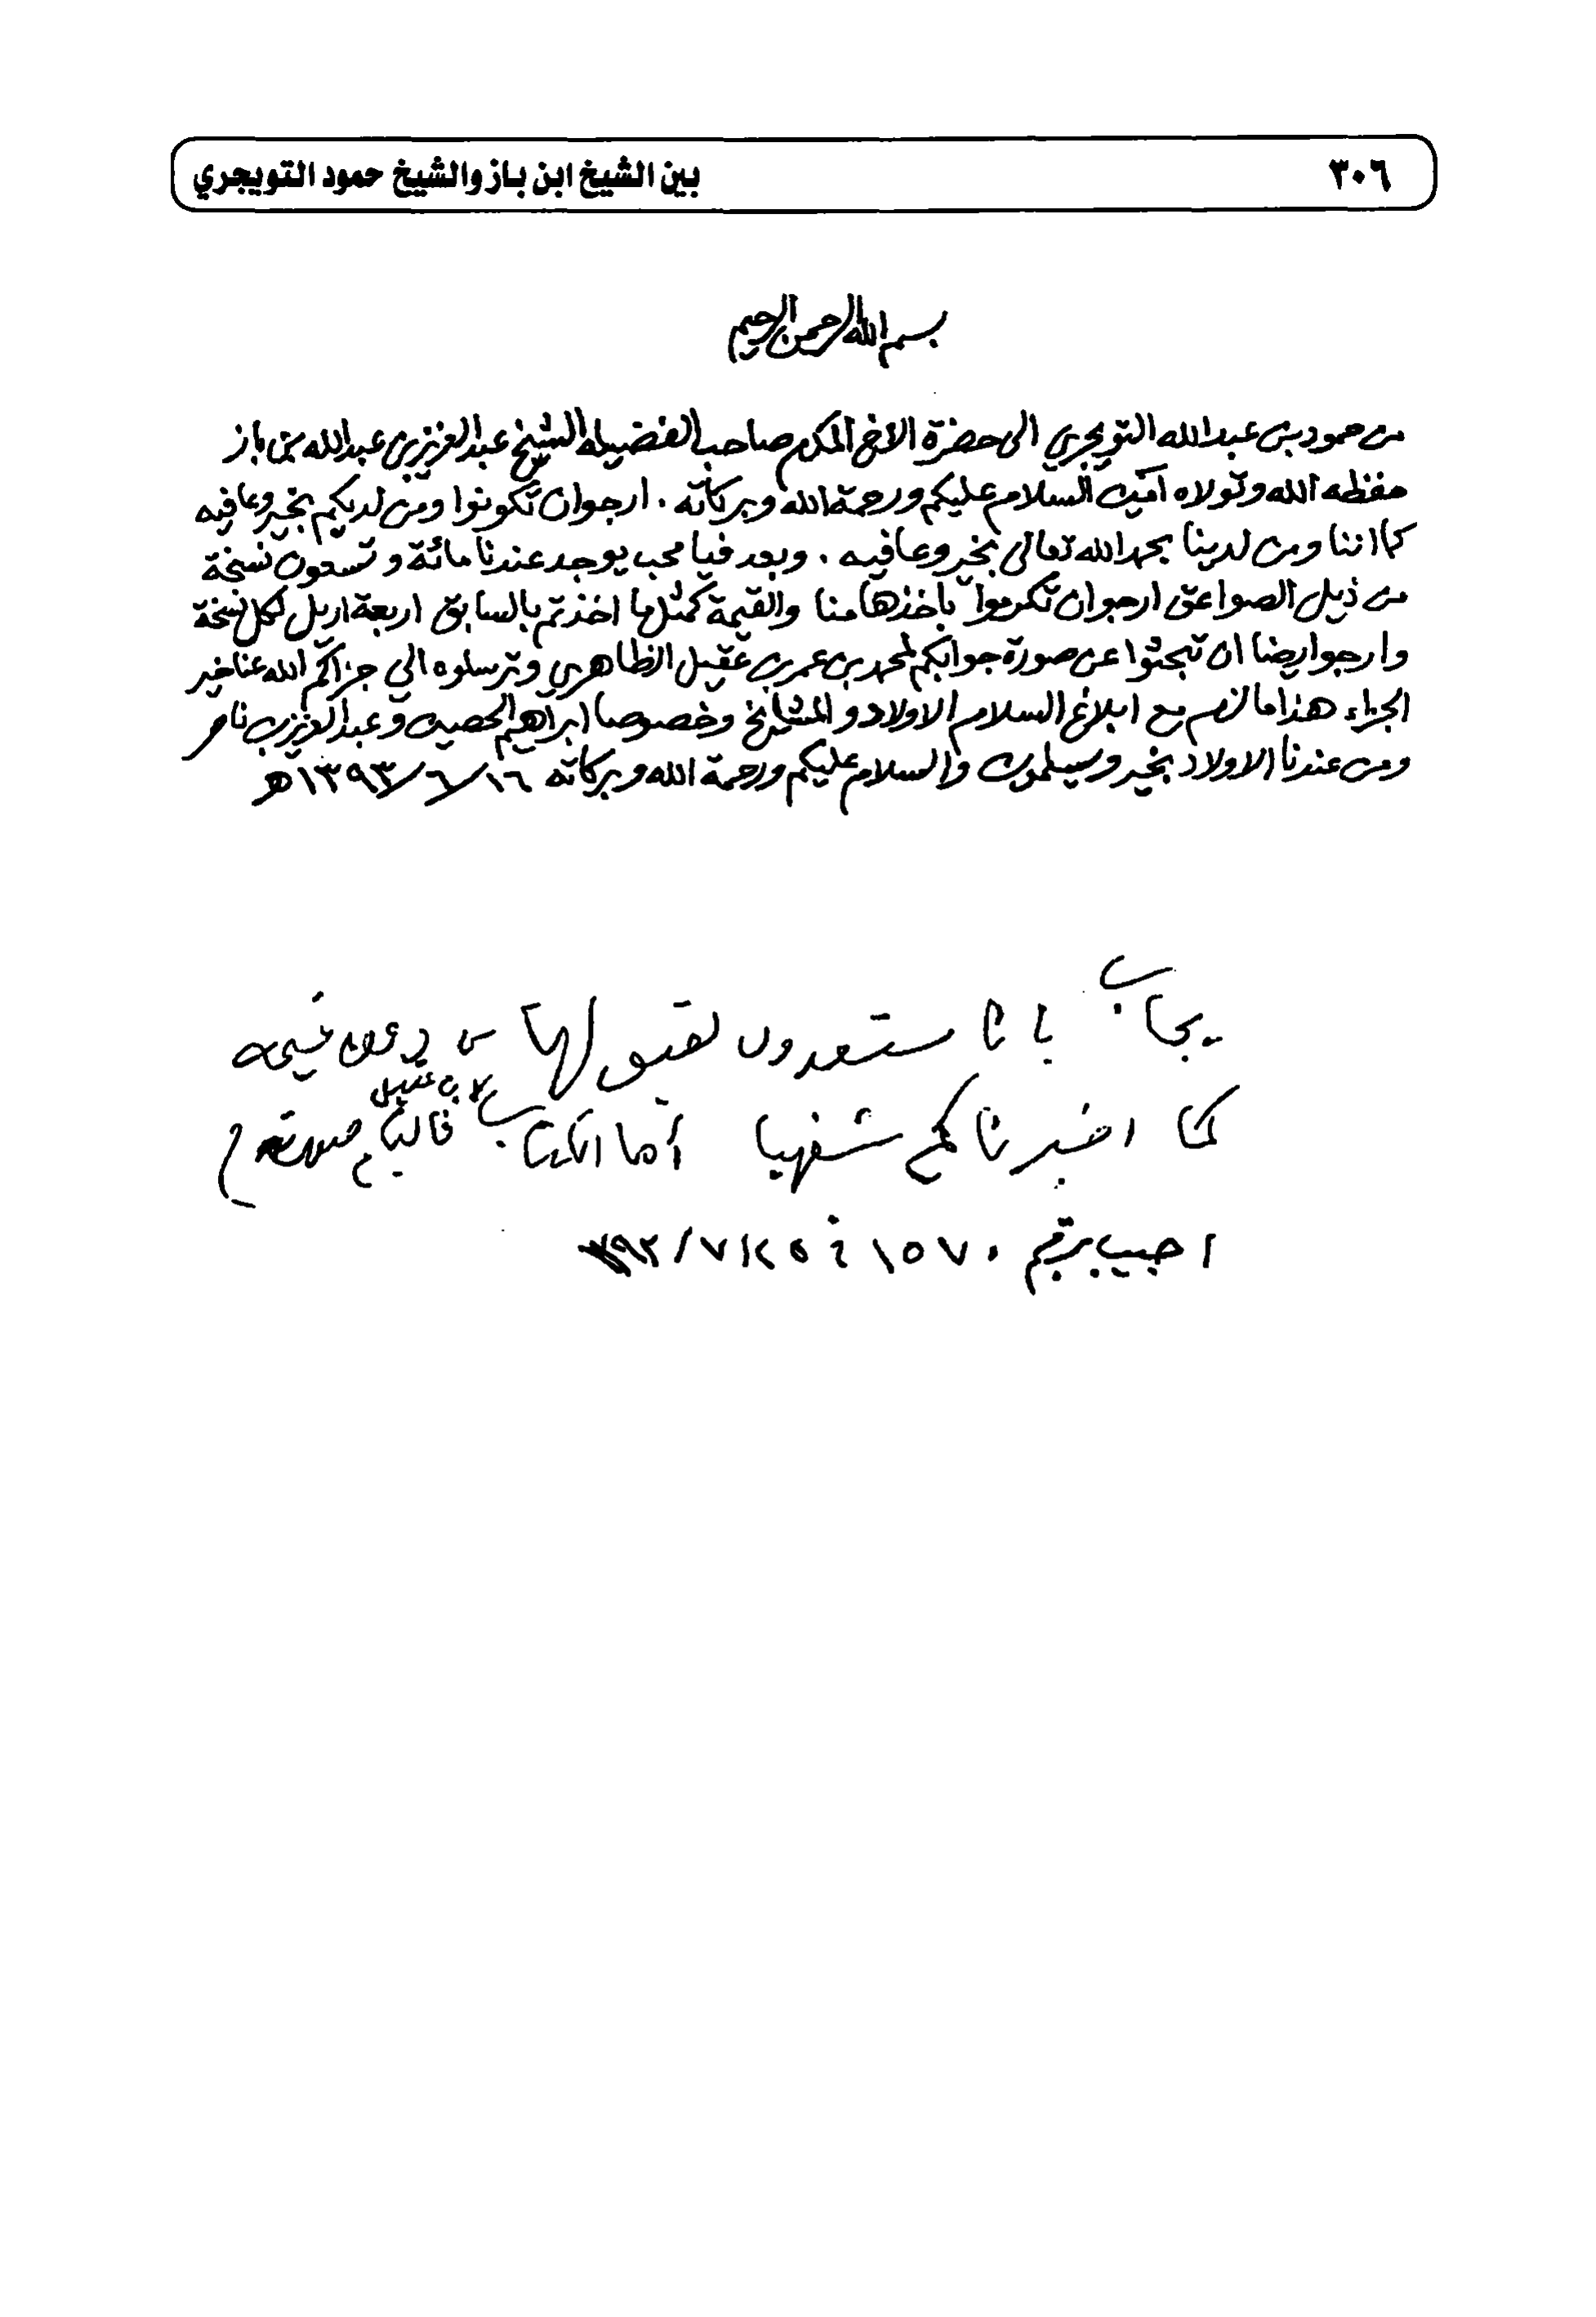 ٣٠٦
بين الشيخ ابن باز والشيخ حمود التويجري
بسم الله الرحمن الرحيم
من حمود بن عبدالله التويجري الى حضرة الاخ المكرم صاحب الفضيله الشيخ عبدالعزيز بن عبدالله بن باز
حفظه الله وتولاه آمين السلام عليكم ورحمة الله وبركاته . ارجوان تكونوا ومن لديكم بخير وعافيه
كما اننا ومن لدينا بحمدالله تعالى بخير وعافيه . وبعد فيا محب يوجد عندنا مائة وتسعون نسخة
من ذيل الصواعق ارجوان تكرموا بأخذها منا والقيمة كمثل ما اخذتم بالسابق اربعة اريل لكل نسخة
وارجو ايضا ان تبحثوا عن صورة جوابكم لمحمد بن عمر بن عقيل الظاهري وترسلوه الي جزاكم الله عنا خير
الجزاء هذا مالزم مع ابلاغ السلام الاولاد و المشايخ وخصوصا ابراهيم الحصين وعبدالعزيز بن ناصر
ومن عندنا الاولاد بخير ويسلمون والسلام عليكم ورحمة الله وبركاته ١٦/٦/١٣٩٣ھ
يجاب بانا مستعدون
كما اخبرناكم شفهيا أما الكتاب لابن عقيل فاليكم صورته
اجيب برقم ١٥٧٠ في ٢٥/٧/